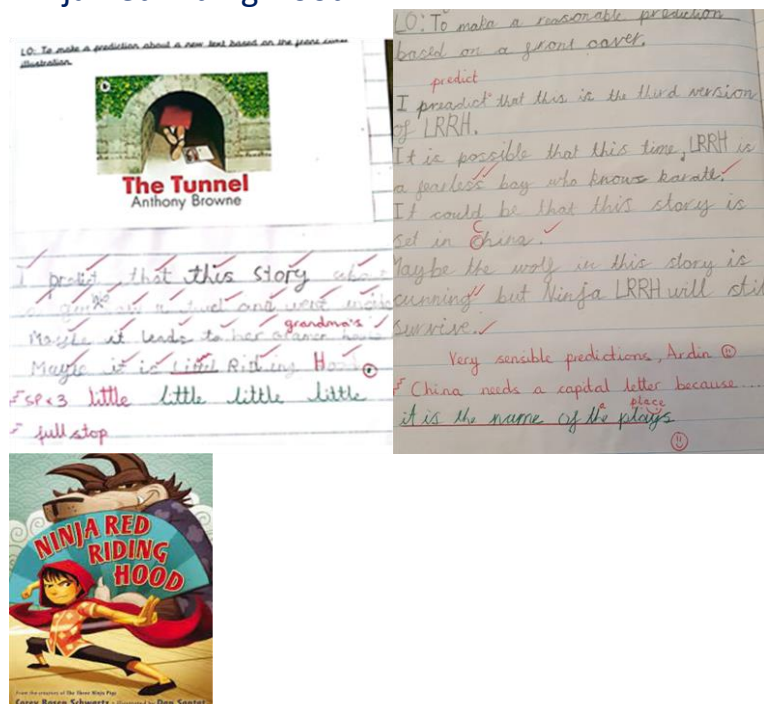 LO: To make a prediction about a new text based on the front cover
illustration.
The Tunnel
Anthony Browne
I predict that this story
and went inside
grandma's
Maybe it leads to her
Maybe it is Little Riding Hood
SP x3 little little little little
full stop
LO: To make a reasonable prediction
based on a front cover.
predict
I preadict that this is the third version
of LRRH.
It is possible that this time, LRRH is
a fearless boy who knows karate.
It could be that this story is
set in China.
Maybe the wolf in this story is
cunning but Ninja LRRH will still
survive.
Very sensible predictions, Ardin
China needs a capital letter because...
a place
it is the name of the plays
NINJA RED
RIDING
HOOD
From the creators of The Three Ninja Pigs
Corey Rosen Schwartz Dan Santat